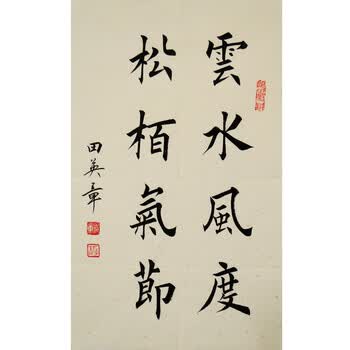 雲水風度
松栢氣節
田英章